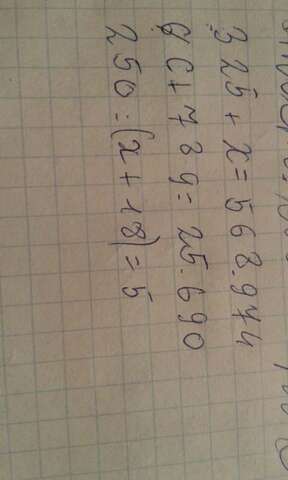 325 + x = 568.974
6 c + 789 = 25.690
250 : (x + 18) = 5